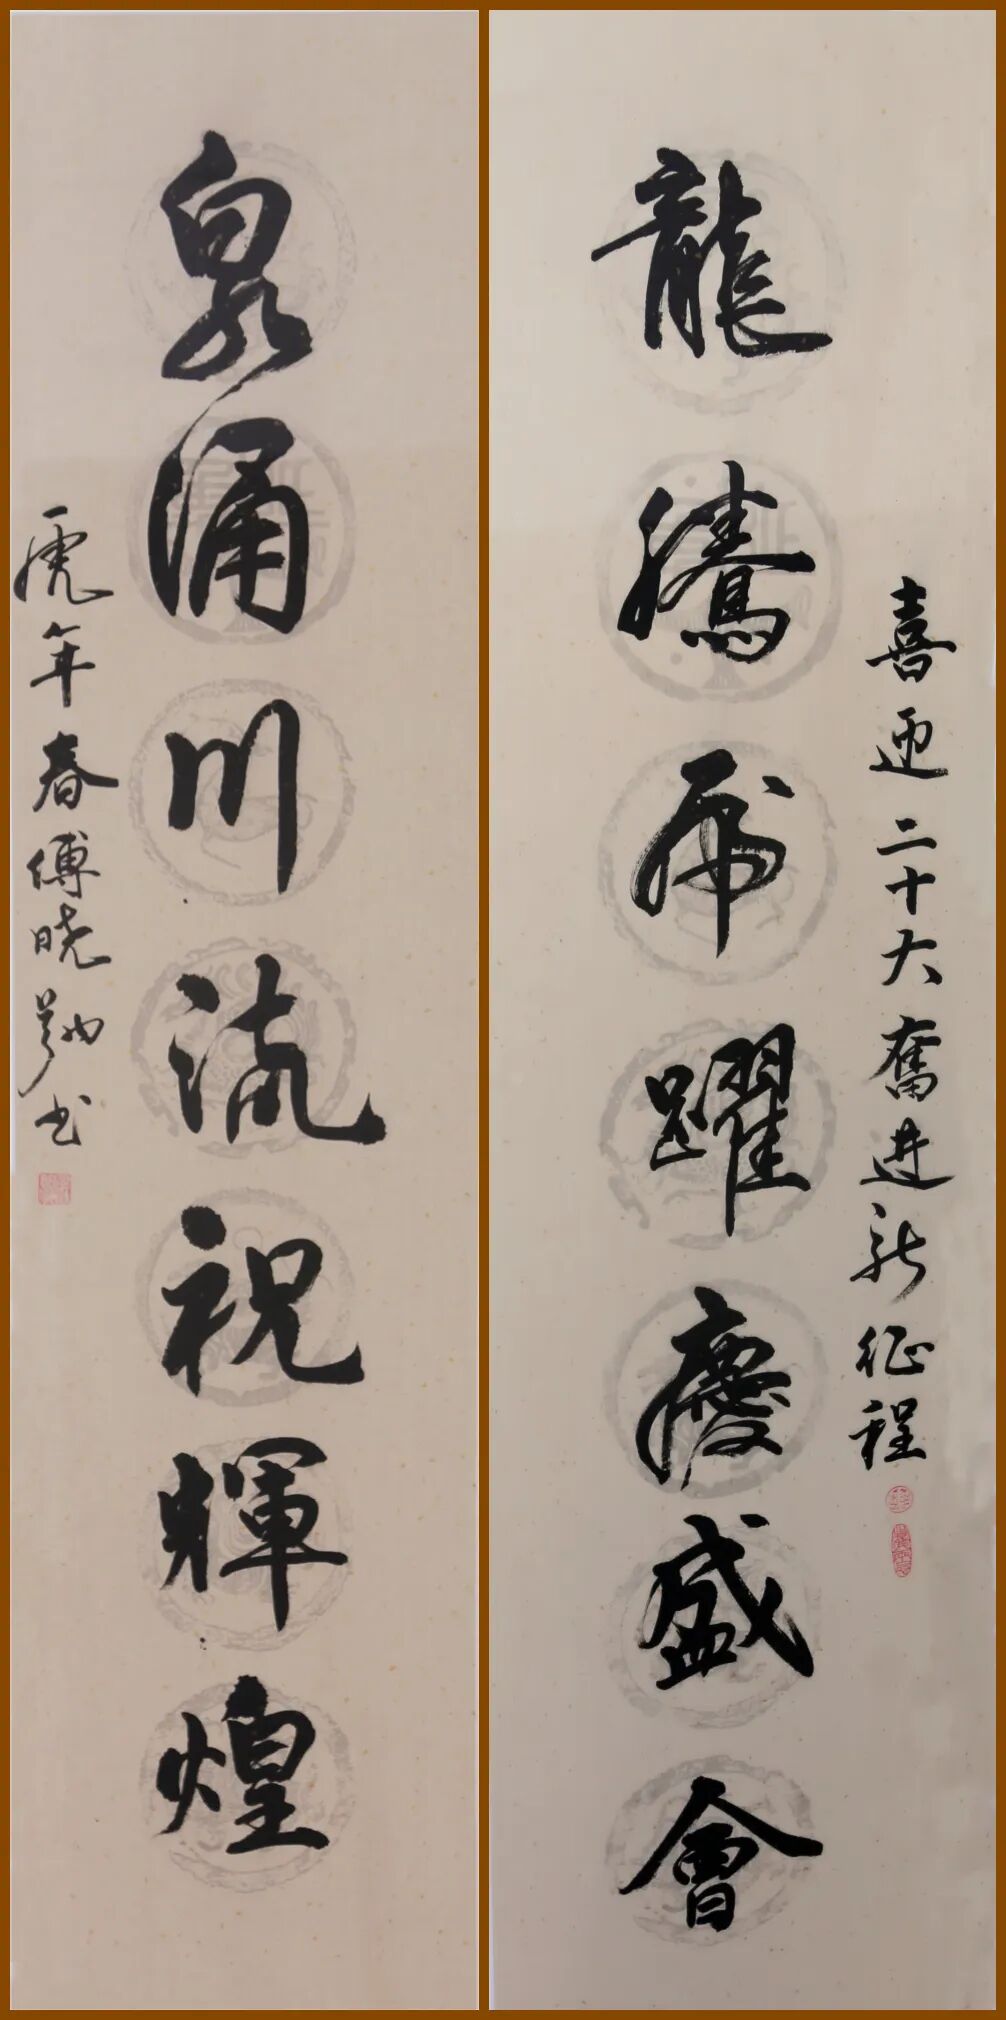 喜迎二十大奮进新征程
龍騰虎躍慶盛會
泉涌川流祝輝煌
虎年春傅晓勤书